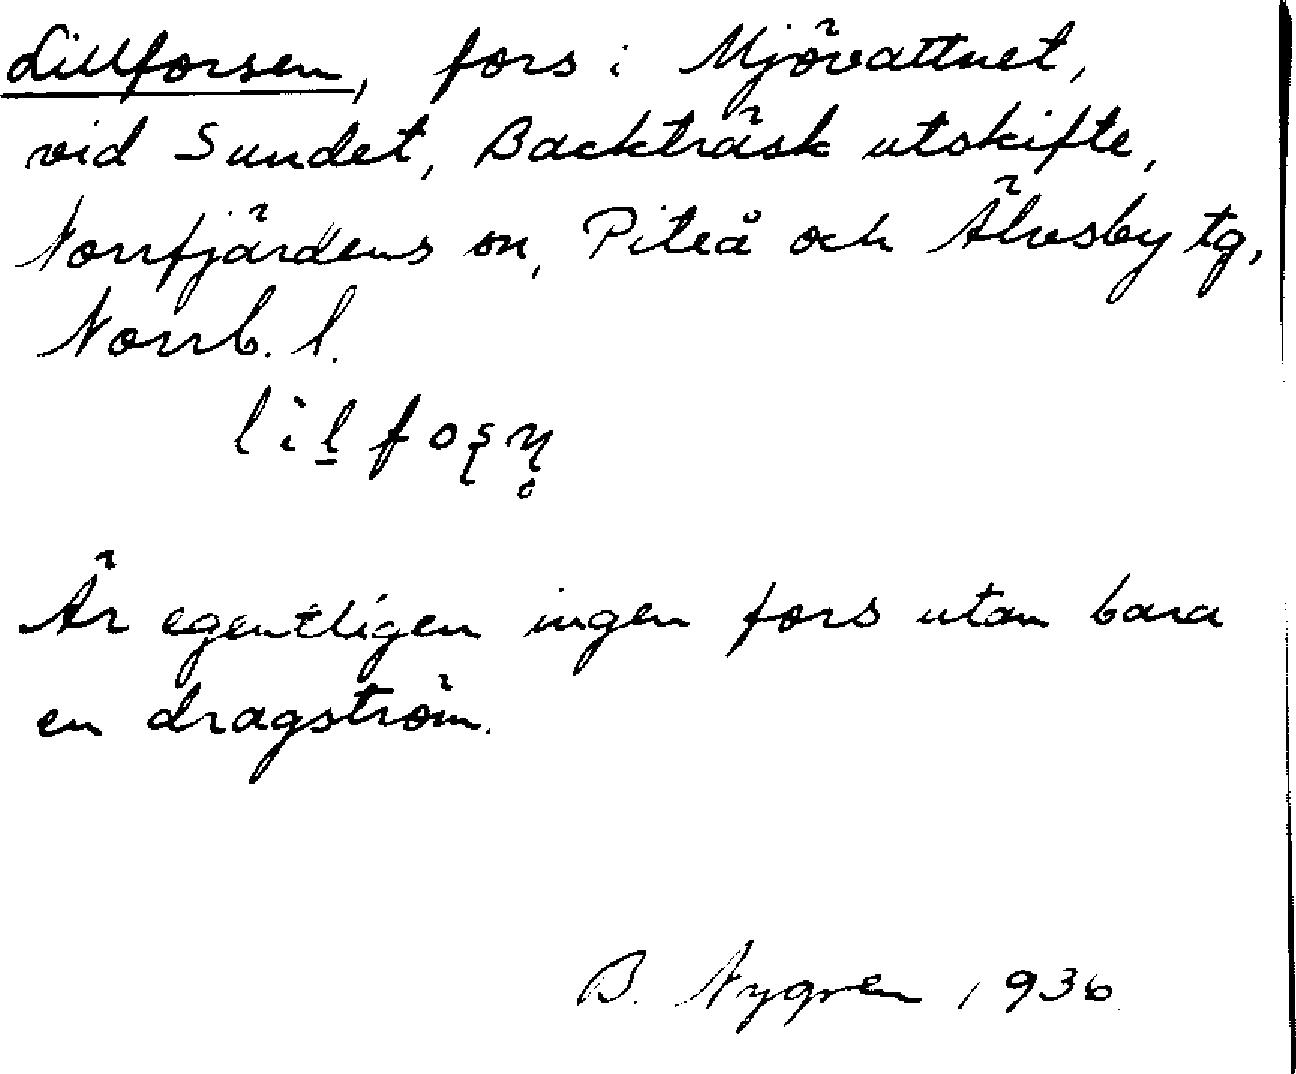 Lillforsen, fors i Mjövattnet,
vid Sundet, Backträsk utskifte,
Norrfjärdens sn, Piteå och Älvsby tg,
Norrb. l.
lìl̠foʂɳ̥
Är egentligen ingen fors utan bara
en dragström.
B. Nygren 1936